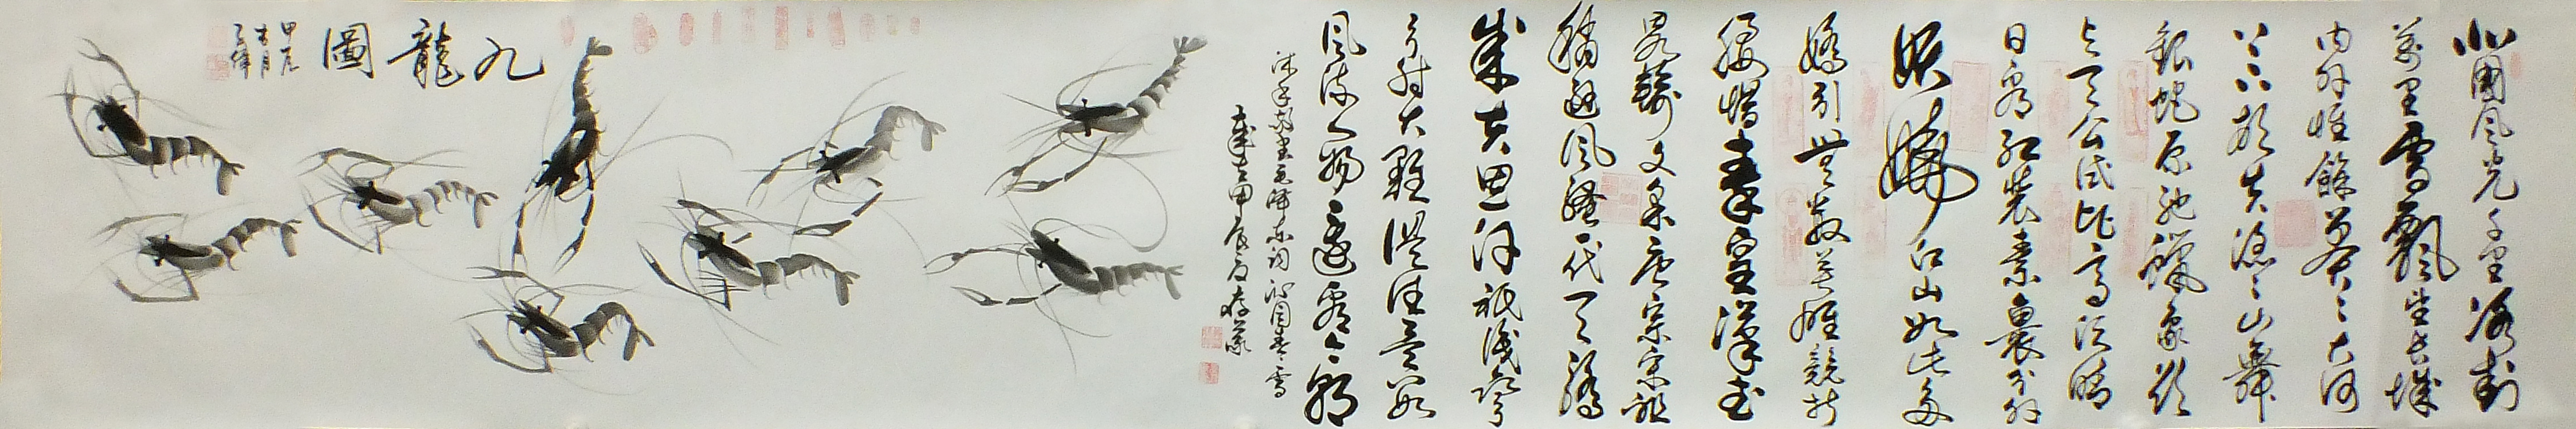 北國風光千里冰封
萬里雪飄望長城
内外惟餘莽〻大河
上下頓失滔〻山舞
銀蛇原馳蠟象欲
与天公試比高須晴
日看紅裝素裹分外
妖嬈江山如此多
嬌引無數英雄競折
腰惜秦皇漢武
略輸文采唐宗宋祖
稍遜風騷一代天驕
成吉思汗祇識彎
弓射大雕俱往矣數
風流人物還看今朝
毛澤東詞沁園春雪
歲在甲辰夏
九龍圖
甲辰